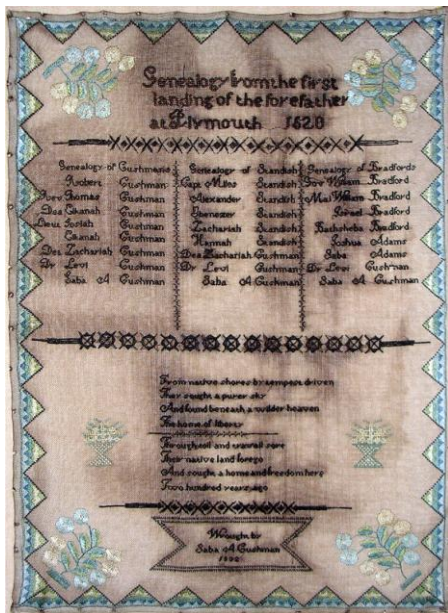 Genealogy from the first
landing of the forefather
at Plymouth 1620
Genealogy of Cushmans
Robert Cushman
Thomas Cushman
Elkanah Cushman
Josiah Cushman
Elkanah Cushman
Zachariah Cushman
Dr Levi Cushman
Saba A Cushman
Genealogy of Standish
Capt Miles Standish
Alexander Standish
Ebenezer Standish
Zachariah Standish
Hannah Standish
Dea Zachariah Cushman
Dr Levi Cushman
Saba A Cushman
Genealogy of Bradfords
Gov William Bradford
Maj William Bradford
Israel Bradford
Bathsheba Bradford
Joshua Adams
Saba Adams
Dr Levi Cushman
Saba A Cushman
From native shores by tempest driven
They sought a purer sky
And found beneath a wilder heaven
The home of liberty
Through toil and
Their native land forego
And sought a home and freedom here
Two hundred years ago
Wrought by
Saba A Cushman